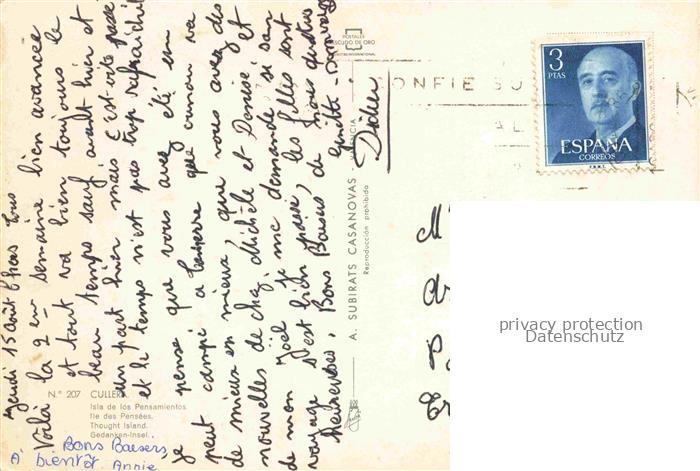 Jeudi 15 août 6 heures
Voilà la 2 em semaine bien avancée
et tout va bien toujours le
beau temps sauf avant hier et
un part hier mais c'est vite passé
et le temps n'est pas trop rafraîchi
je pense que vous avez été en
peut campé à que canon va
de mieux en mieux, que vous avez des
nouvelles de chez Michèle et Denise et
de mon Joël je me demande si son
voyage s'est bien passé, les filles sont
Bons Baisers de nous quatre
Ginette
Didier
Bons Baisers
A bientôt Annie
N.° 207 CULLERA
Isla de los Pensamientos.
Ile des Pensées.
Thought Island.
Gedanken-Insel.
POSTALES
ESCUDO DE ORO
A. SUBIRATS CASANOVAS VALENCIA
Reproducción prohibida
ONFIE SU
AL
3
PTAS
ESPAÑA
CORREOS
F.N.M.T.
privacy protection
Datenschutz